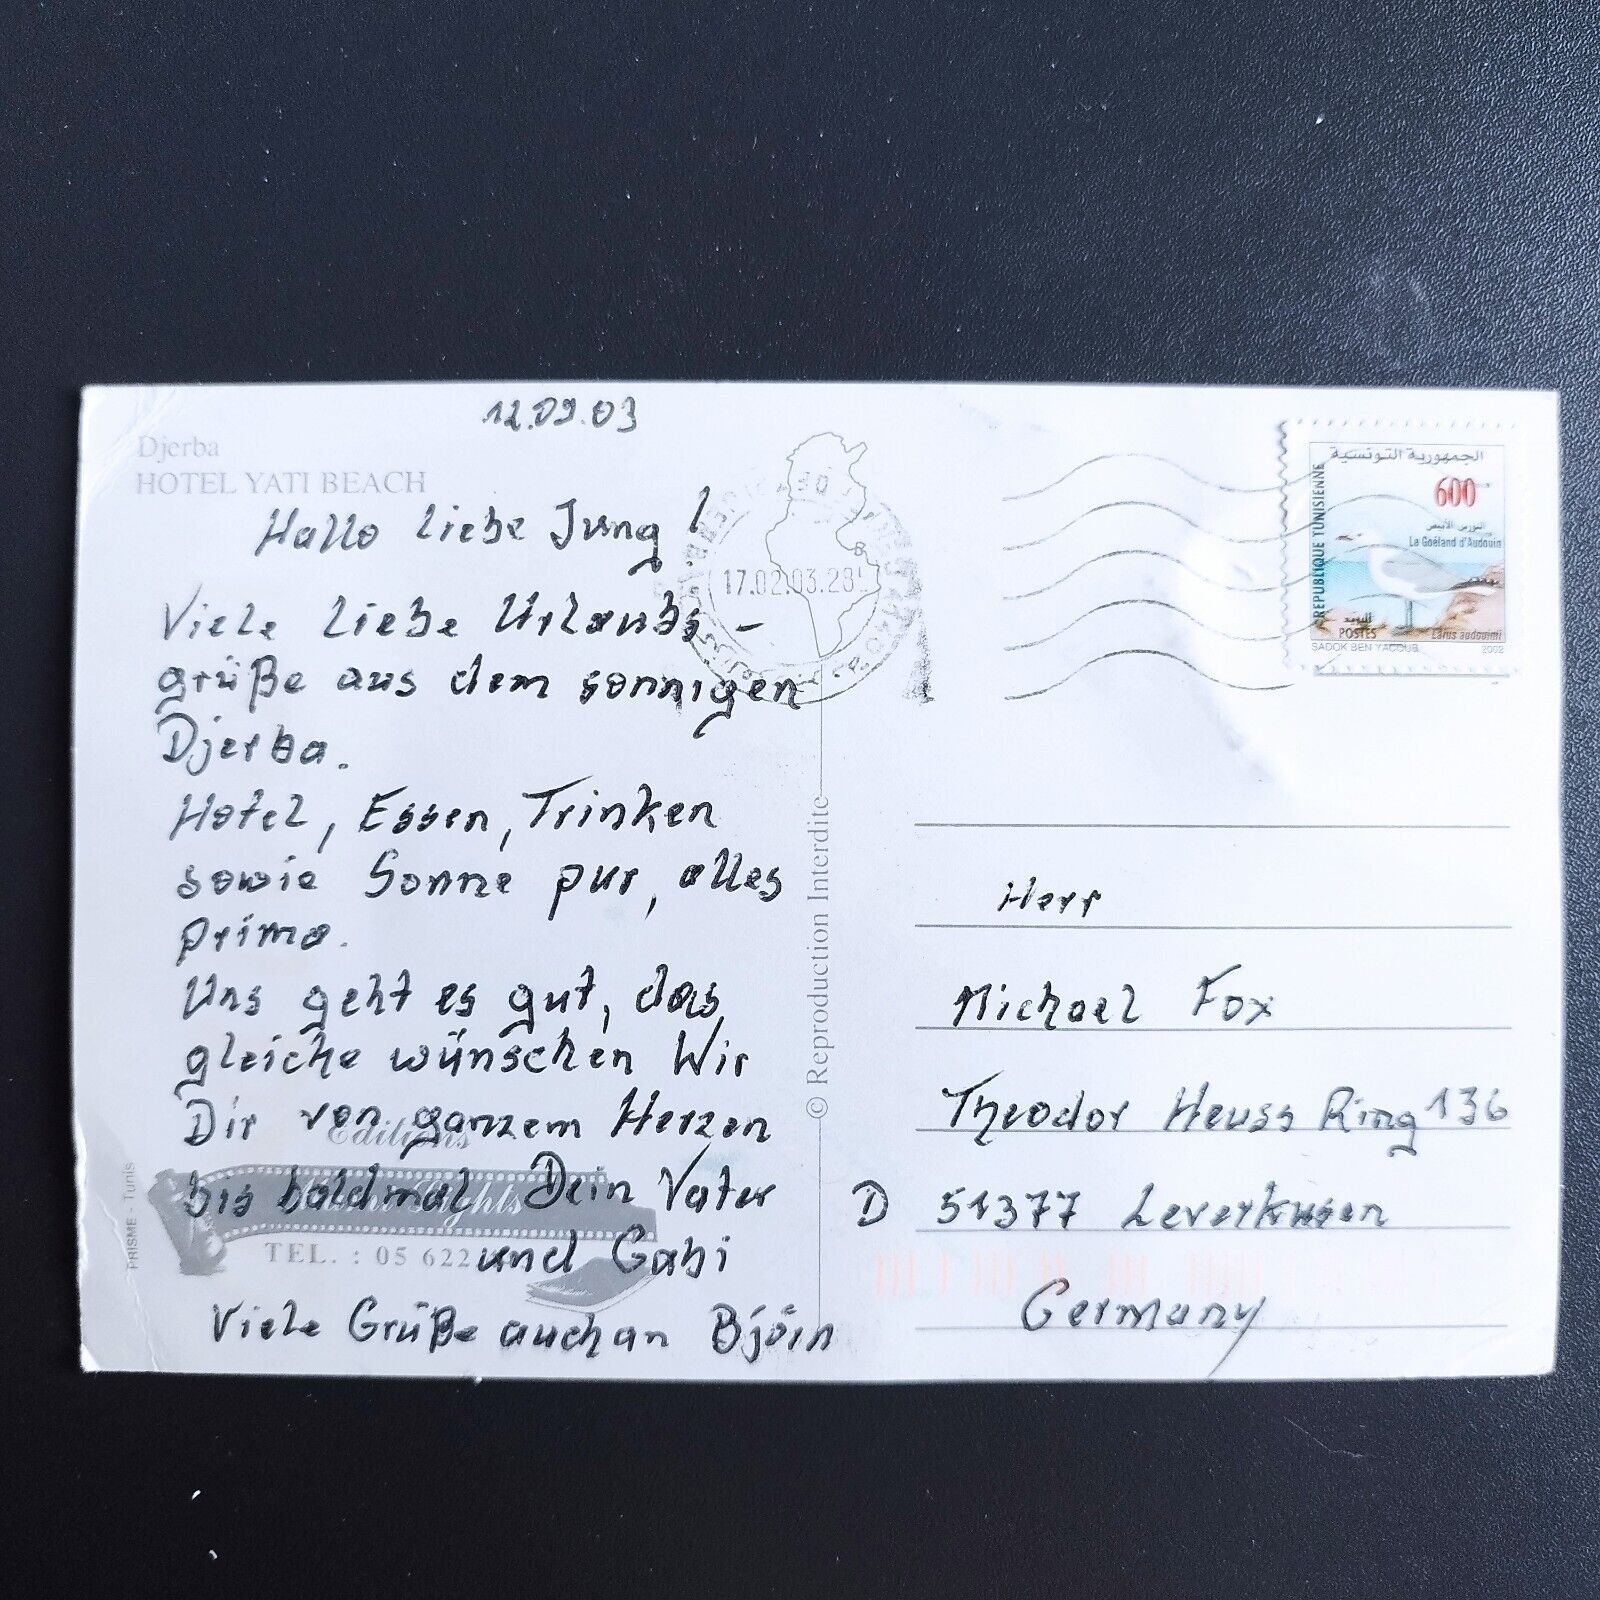 12.09.03
Djerba
HOTEL YATI BEACH
Hallo liebe Jung!
Viele liebe Urlaubs-
grüße aus dem sonnigen
Djerba.
Hotel, Essen, Trinken
sowie Sonne pur, alles
prima.
Uns geht es gut, das
gleiche wünschen Wir
Dir von ganzem Herzen
bis baldmal Dein Vater
und Gabi
Viele Grüße auch an Björn
Editions
TEL. : 05 622
PRISME - Tunis
© Reproduction Interdite
17.02.03.28
الجمهورية التونسية
600
REPUBLIQUE TUNISIENNE
النورس الأبيض
Le Goéland d'Audouin
البريد
POSTES
Larus audouini
SADOK BEN YACOUB
2002
Herr
Michael Fox
Theodor Heuss Ring 136
D 51377 Leverkusen
Germany